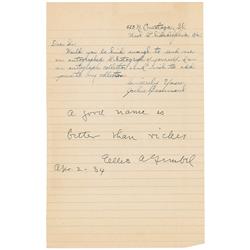 Dear Sir:
Would you be kind enough to send me
an autographed photograph of yourself. I am
an autograph collector and I'd like to add
yours to my collection.
Sincerely Yours,
A good name is
better than riches
Ellis A Gimbel
Apr. 2 - 34